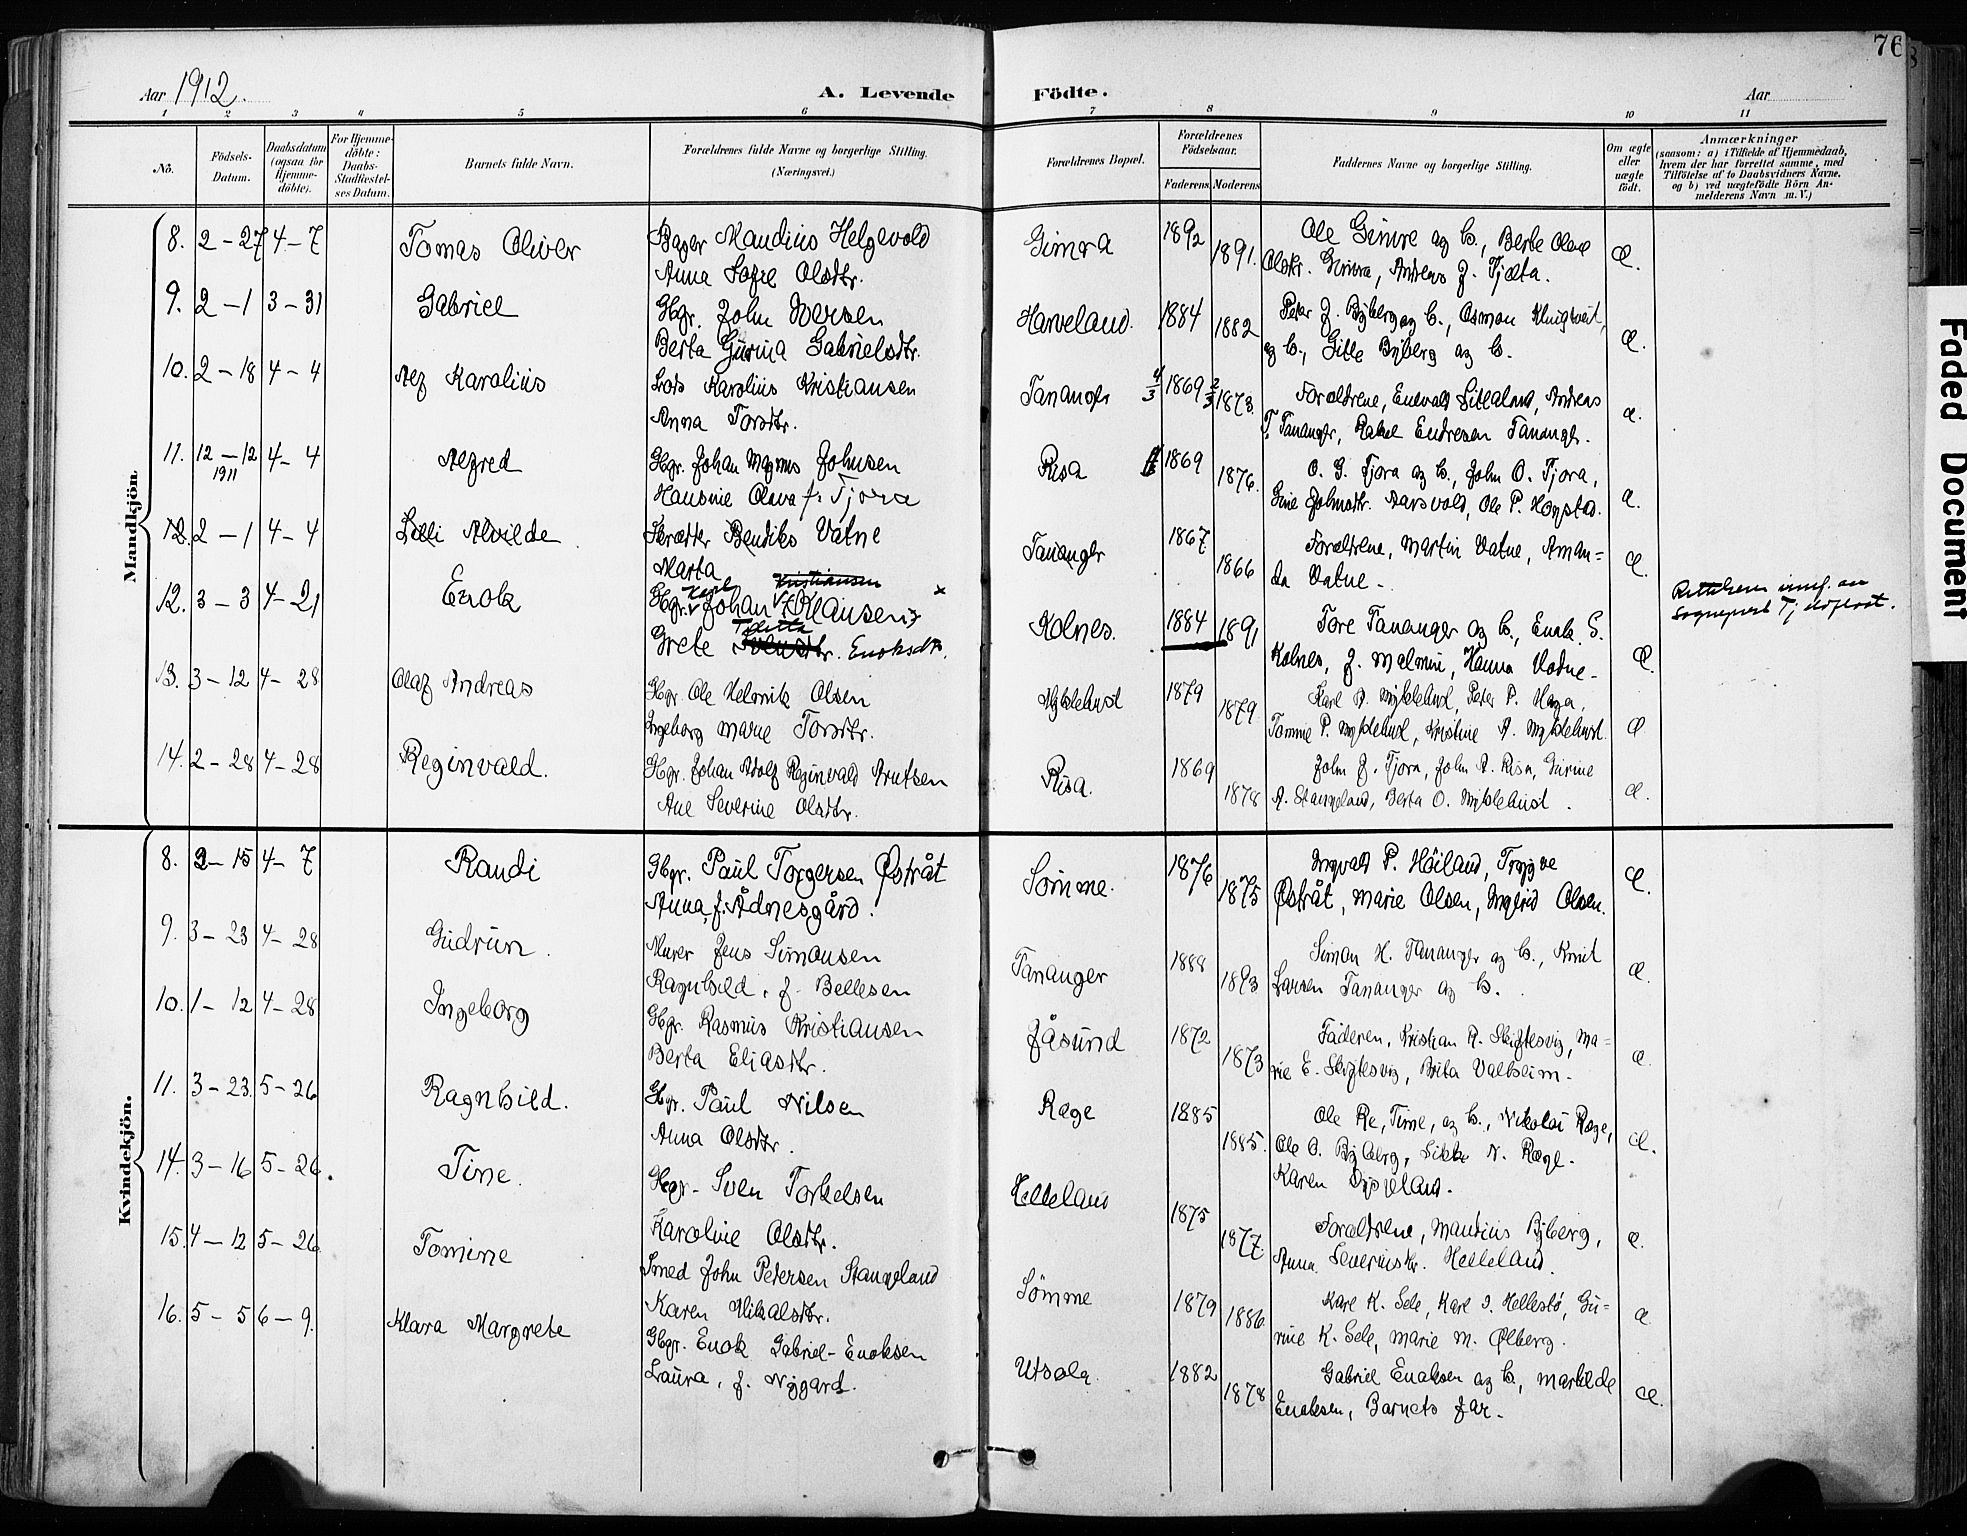 76
Aar 1912. A. Levende Födte. Aar
1 2 3 4 5 6 7 8 9 10 11
No. Födsels-Datum. Daabsdatum (ogsaa for Hjemmedöbte). For Hjemmedöbte: Daabs-Stadfæstelses Datum. Barnets fulde Navn. Forældrenes fulde Navne og borgerlige Stilling. (Næringsvei.) Forældrenes Bopæl. Forældrenes Födselsaar. Faderens Moderens Faddernes Navne og borgerlige Stilling. Om ægte eller uægte födt. Anmærkninger (saasom: a) i Tilfælde af Hjemmedaab, hvem der har forrettet samme, med Tilföielse af to Daabsvidners Navne, og b) ved uægtefödte Börn Anmelderens Navn m. V.)
Mandkjön.
8. 2-27 4-7 Tomas Oliver Bager Maudius Helgevold Gimra 1892 Ole Gimre og h., Berte Olene
Anna Sofie Olsdtr. 1891. Olsdtr. Gimra, Andreas J. Tjelta. Æ.
9. 2-1 3-31 Gabriel Gbgr. John Iversen Harveland. 1884 Peter J. Byberg og h., Osmon
Berta Gurina Gabrielsdtr. 1882 og h., Gitle Byberg og h. Æ.
10. 2-18 4-4 Alf Karolius Lods Karolius Kristiansen Tananger 4/3 1869 Forældrene, Endvald Sittelund, Andreas
Anna Torsdtr. 2/3 1873. T. Tananger, Rakel Endresen Tananger. Æ.
11. 12-12 1911 4-4 Alfred Gbgr. Johan Magnus Johnsen Risa 1869 O. G. Tjora og h., John O. Tjora,
Hansine Olava f. Tjora 1876. Gine Johnsdtr. Aarsvold, Ole P. Hogstad. Æ.
12. 2-1 4-4 Lalli Alvilde Skrædder Bendiks Vatne Tananger 1867 Forældrene, Martin Vatne, Aman-
Marta 1866 da Vatne - Æ.
12. 3-3 4-21 Enok Gbgr. Johan Klausen Kristiansen x Kolnes. 1884 1891 Tore Tananger og h., Enok S. Rettelsen innf. av
Grete Toletta Svensdtr. Enoksdtr. Kolnes, J. Malmin, Hanna Vatne - Æ. Sogneprest Tjeldflaat.
13. 3-12 4-28 Olaf Andreas Gbgr. Ole Helmik Olsen Myklebust 1879 Karl A. Myklebust, Peter P. Haga,
Ingeborg Marie Torsdtr. 1879 Tomine P. Myklebust, Kristine A. Myklebust. Æ
14. 2-28 4-28 Reginvald. Gbgr. Johan Adolf Reginvald Arntsen Risa. 1869 John J. Tjora, John A. Risa, Gurine
Ane Severine Olsdtr. 1878 A. Stangeland, Berta O. Myklebust. Æ.
Kvindekjön.
8. 2-15 4-7 Randi Gbgr. Paul Torgersen Østråt Sömme. 1876 Ingvald P. Höiland, Trygve
Anna, f. Ådnesgård. 1875 Østråt, Marie Olsen, Ingfrid Olsen. Æ.
9. 3-23 4-28 Gudrun. Murer Jens Simonsen Tananger 1888 Simon H. Tananger og h., Knut
Ragnhild, f. Bellesen 1893 Larsen Tananger og h. Æ.
10. 1-12 4-28 Ingeborg Gbgr. Rasmus Kristiansen Jåsund 1872 Faderen, Kristian R. Skiftesvig, Ma-
Berta Eliasdtr. 1873 rie E. Skiftesvig, Brita Valheim - Æ.
11. 3-23. 5-26 Ragnhild. Gbgr. Paul Nilsen Ræge 1885 Ole Re, Time, og h., Nikolai Ræge,
Anna Olsdtr. 1885. Ole O. Byberg, Sikke N. Ræge -
Karen Dysvland. Æ.
14. 3-16 5-26. Tine. Gbgr. Sven Torkelsen Helleland 1875 Forældrene, Maudius Byberg,
Karoline Olsdtr. 1877 Anna Severinsdtr. Helleland. Æ.
15. 4-12 5-26 Tomine Smed John Petersen Stangeland Sömme 1879 Karl K. Sele, Karl I. Hellestö, Gu-
Karen Mikalsdtr. 1886 rine K. Sele, Marie M. Ølberg. Æ
16. 5-5 6-9. Klara Margrete Gbgr. Enok Gabriel Enoksen Utsola. 1882 Gabriel Enoksen og h., Matilde
Laura, f. Nygard. 1878 Enoksen, Barnets far - Æ.
Faded Document